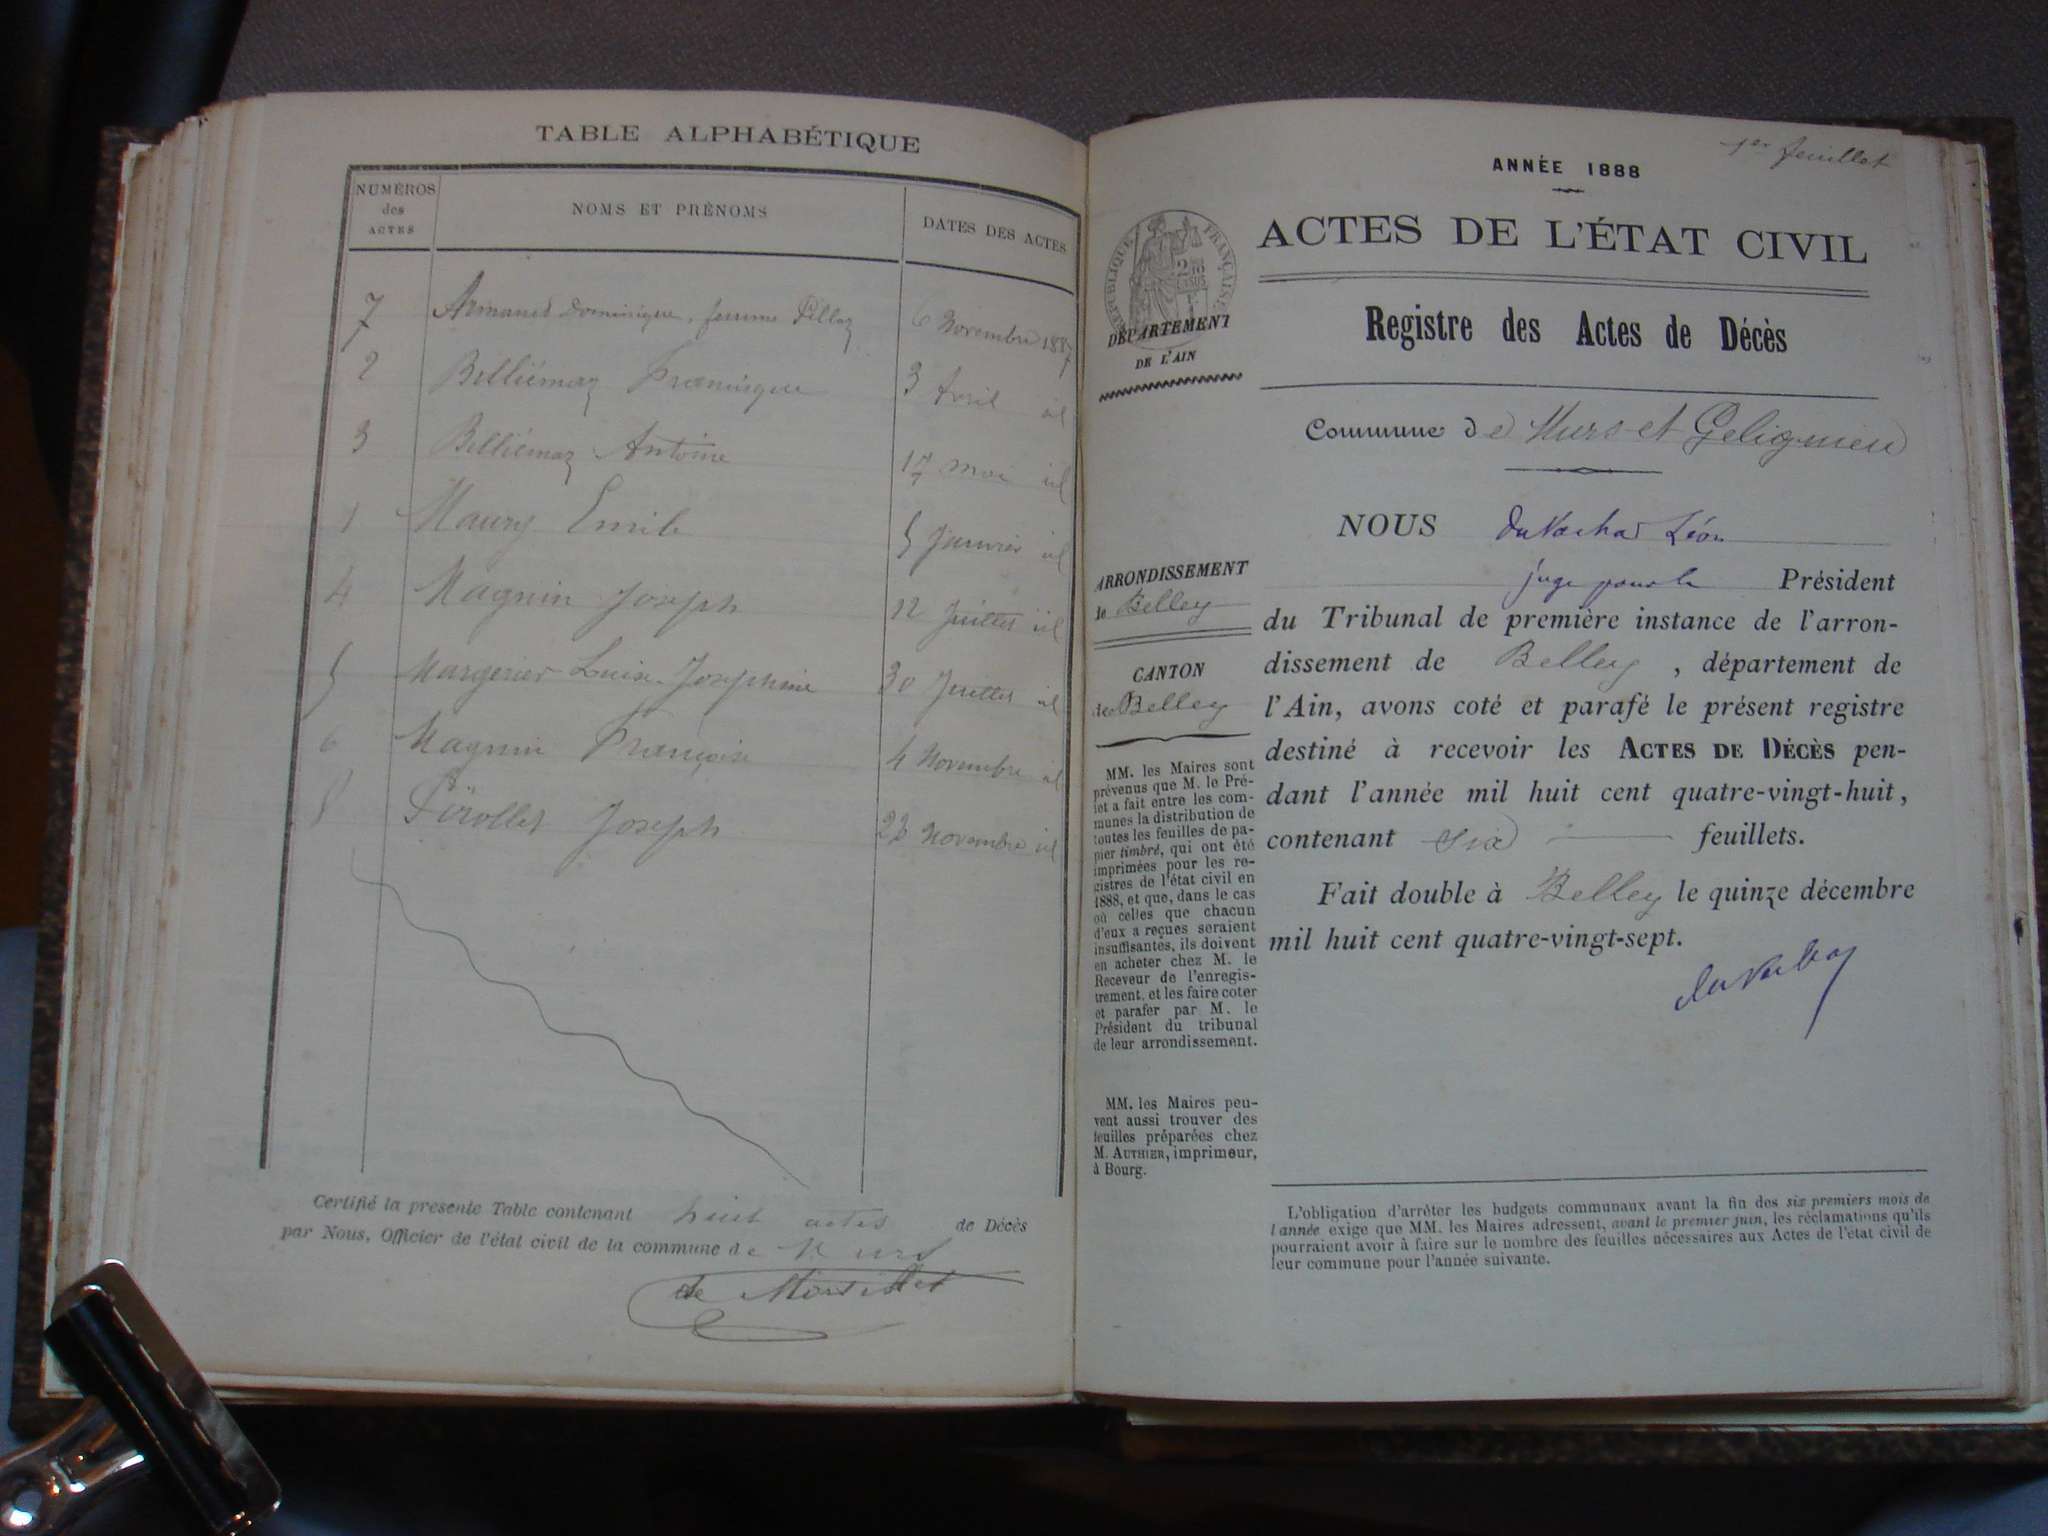 TABLE ALPHABÉTIQUE
NUMÉROS des ACTES
NOMS ET PRÉNOMS
DATES DES ACTES
7 Armand Dominique, femme Pillaz 6 Novembre 1887
2 Belliémaz Françoise 3 Avril id
3 Belliémaz Antoine 17 mai id
1 Maury Emile 5 Janvier id
4 Magnin Joseph 12 Juillet id
5 Margerier Luise Joséphine 30 Juillet id
6 Magnin Françoise 4 Novembre id
8 Pérollet Joseph 23 Novembre id
Certifié la présente Table contenant huit actes de Décès
par Nous, Officier de l'état civil de la commune de Murs
de Mortillet
1er feuillet
ANNÉE 1888
ACTES DE L'ÉTAT CIVIL
RÉPUBLIQUE FRANÇAISE
DÉPARTEMENT
DE L'AIN
Registre des Actes de Décès
Commune de Murs et Gelignieu
NOUS Léon
juge pour le Président
du Tribunal de première instance de l'arron-
dissement de Belley, département de
l'Ain, avons coté et parafé le présent registre
destiné à recevoir les ACTES DE DÉCÈS pen-
dant l'année mil huit cent quatre-vingt-huit,
contenant six feuillets.
Fait double à Belley le quinze décembre
mil huit cent quatre-vingt-sept.
ARRONDISSEMENT
de Belley
CANTON
de Belley
MM. les Maires sont
prévenus que M. le Pré-
fet a fait entre les com-
munes la distribution de
toutes les feuilles de pa-
pier timbré, qui ont été
imprimées pour les re-
gistres de l'état civil en
1888, et que, dans le cas
où celles que chacun
d'eux a reçues seraient
insuffisantes, ils doivent
en acheter chez M. le
Receveur de l'enregis-
trement, et les faire coter
et parafer par M. le
Président du tribunal
de leur arrondissement.
MM. les Maires peu-
vent aussi trouver des
feuilles préparées chez
M. AUTHIER, imprimeur,
à Bourg.
L'obligation d'arrêter les budgets communaux avant la fin des six premiers mois de
l'année exige que MM. les Maires adressent, avant le premier juin, les réclamations qu'ils
pourraient avoir à faire sur le nombre des feuilles nécessaires aux Actes de l'état civil de
leur commune pour l'année suivante.